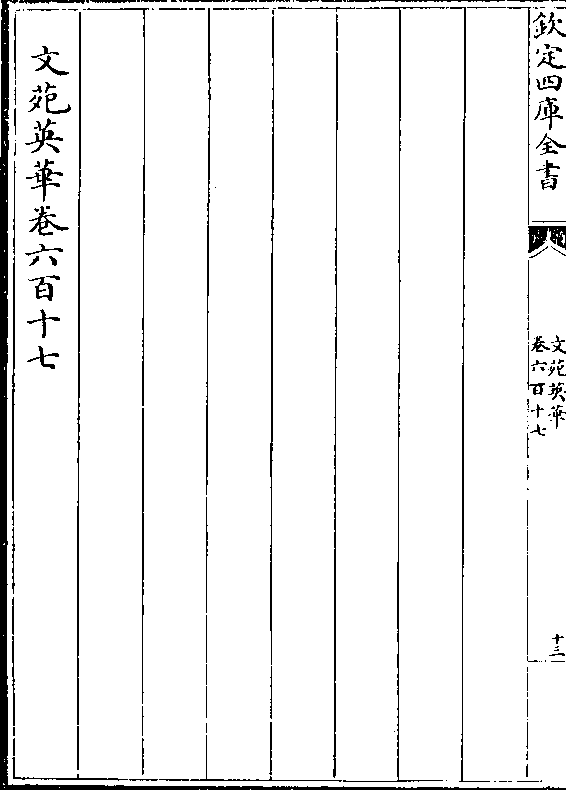 欽定四庫全書
文苑英華
卷六百十七
十三
文苑英華卷六百十七